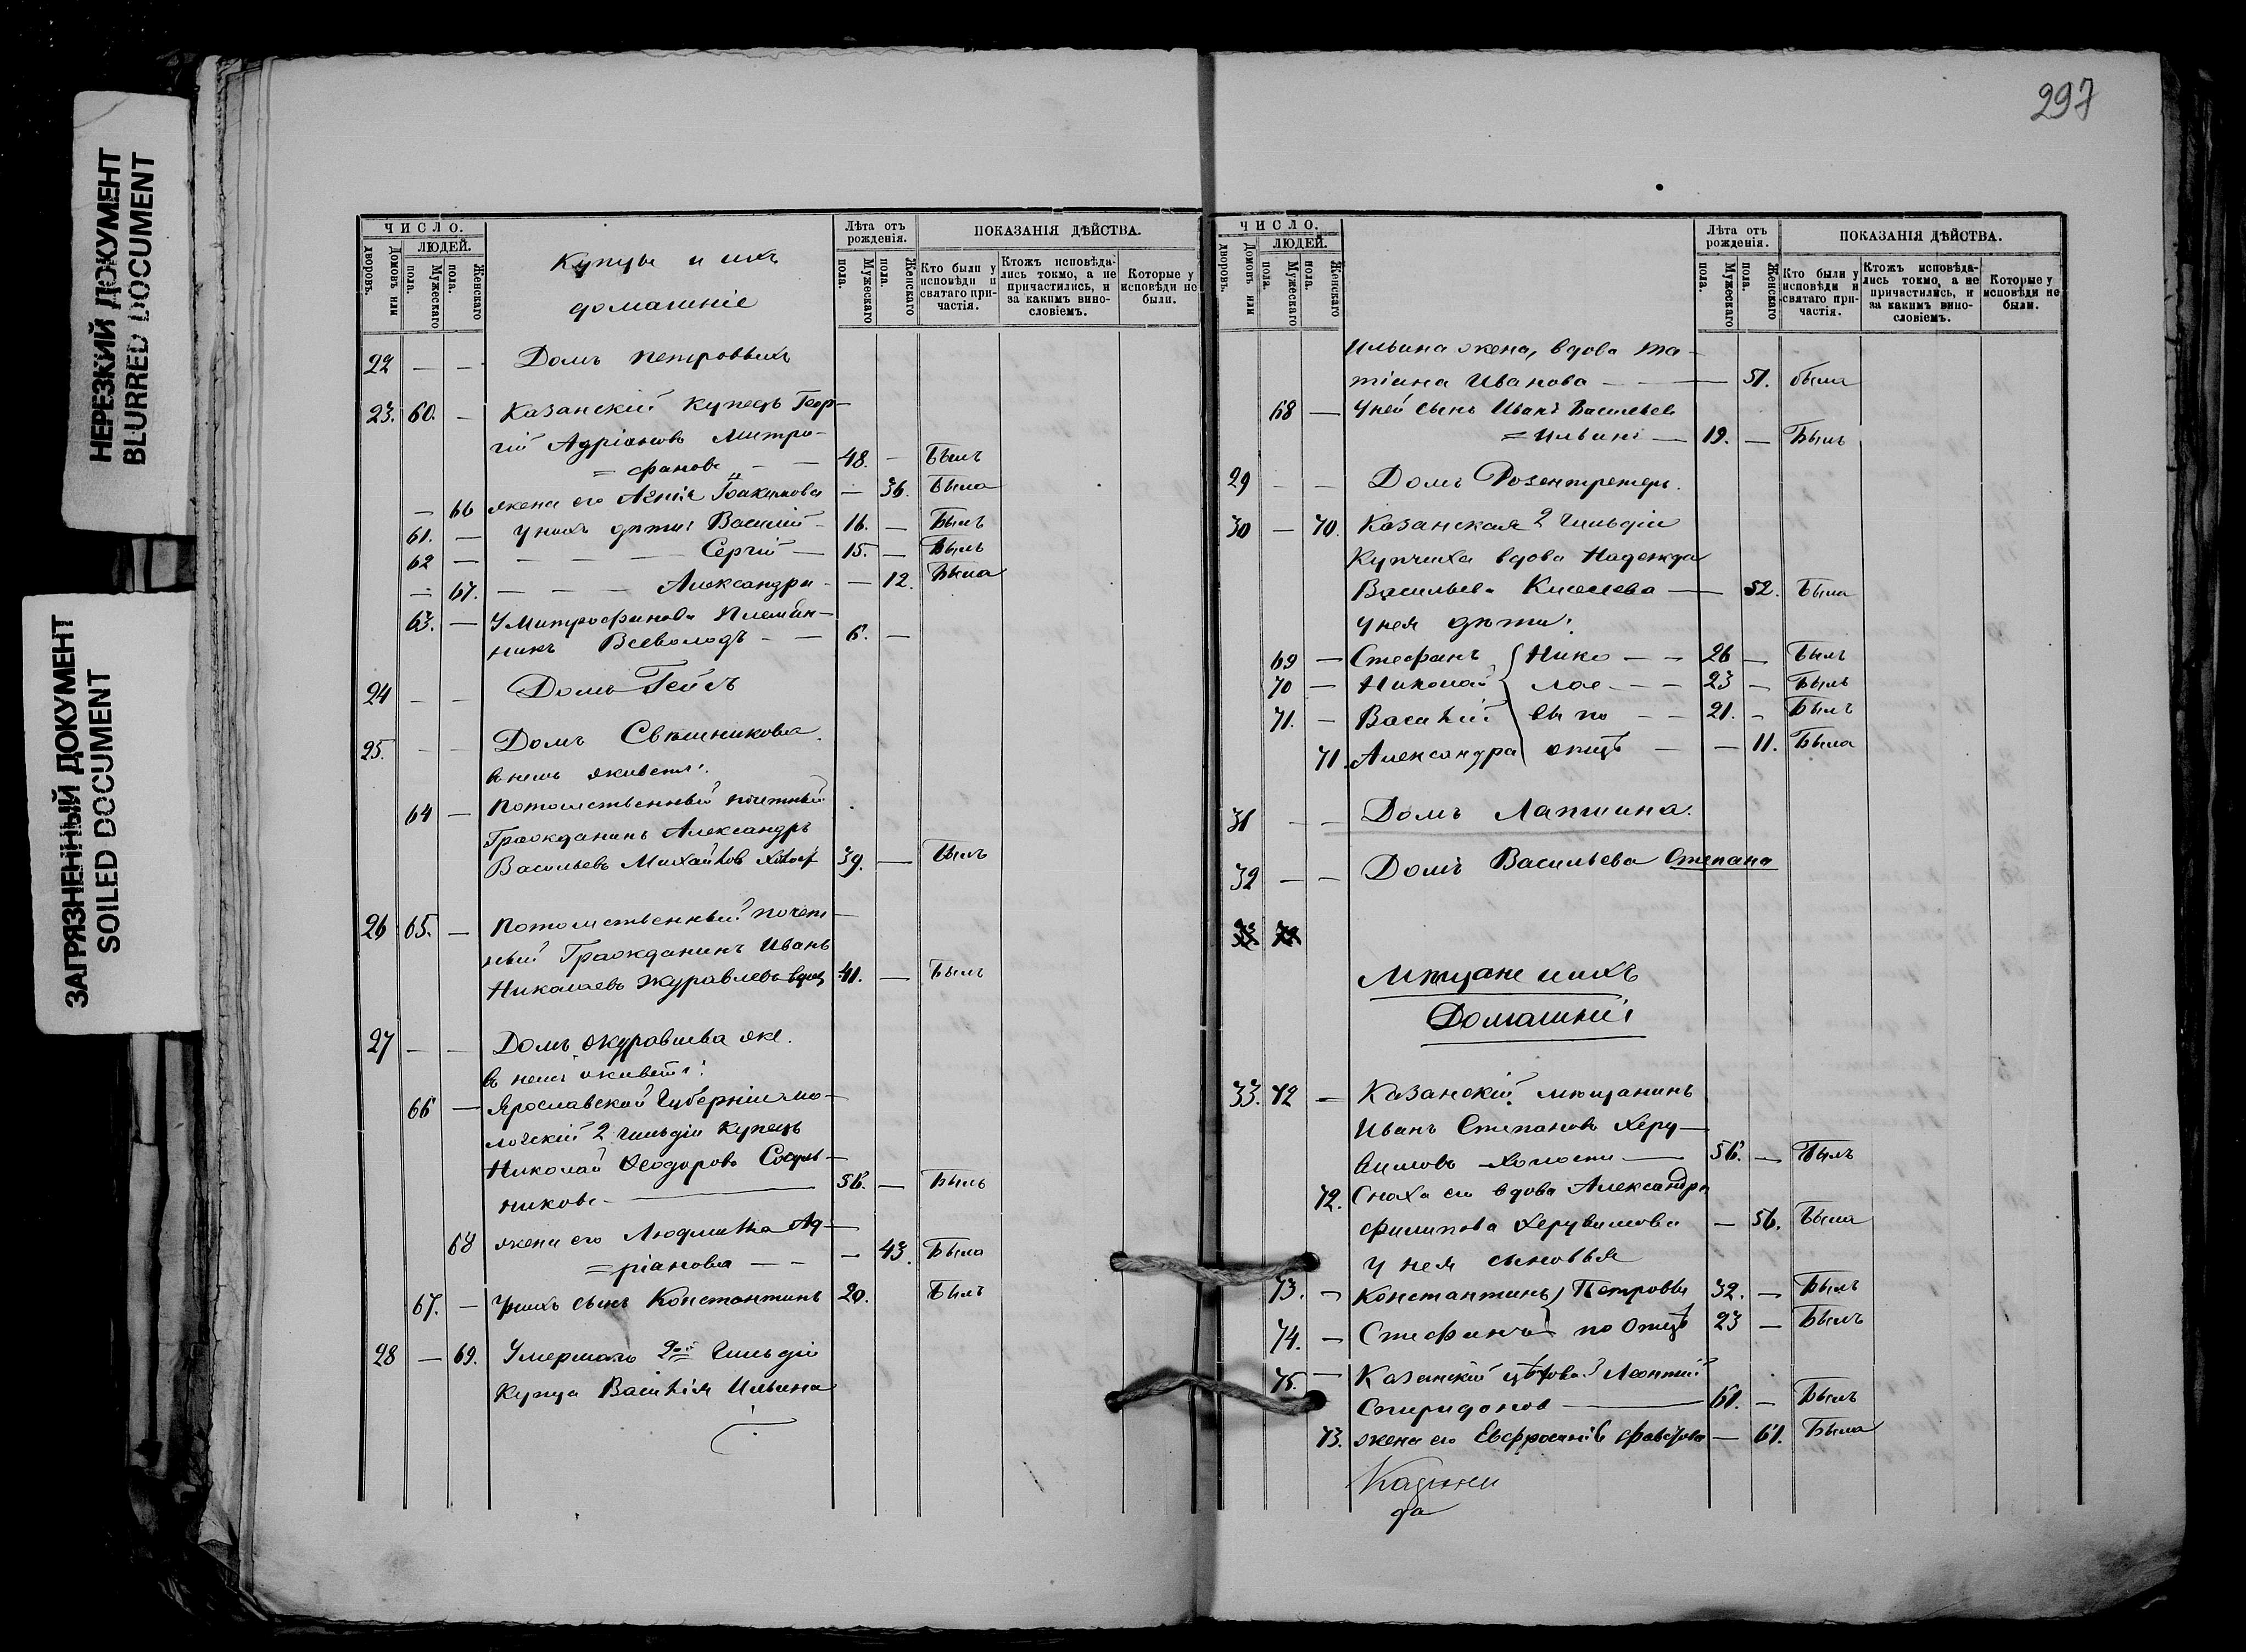 НЕРЕЗКИЙ ДОКУМЕНТ
BLURRED DOCUMENT
ЗАГРЯЗНЕННЫЙ ДОКУМЕНТ
SOILED DOCUMENT
ЧИСЛО.
ЛЮДЕЙ.
Домовъ или дворовъ.
Мужескаго пола.
Женскаго пола.
Купцы и ихъ
домашніе
Лѣта отъ рожденія.
Мужескаго пола.
Женскаго пола.
ПОКАЗАНІЯ ДѢЙСТВА.
Кто были у исповѣди и святаго причастія.
Ктожъ исповѣдались токмо, а не причастились, и за какимъ винословіемъ.
Которые у исповѣди не были.
22 — — Домъ Петровыхъ
23. 60. — Казанскій Купецъ Геор-
гій Адріановъ Митро-
= фановъ — — 48. — Былъ
— 66 жена его Агнія Іоакимова — 36. Была
61. — У нихъ дѣти: Василій — 16. — Былъ
62 — — — — Сергій — 15. — Былъ
— 67. — — — Александра — — 12. Была
63. — У Митрофанова Племян-
никъ Всеволодъ — — 6. —
24 — — Домъ Гейсъ
25. — — Домъ Свѣшникова.
в немъ живетъ:
64 — Потомственный почетный
Гражданинъ Александръ
Васильевъ Михайлов холост 39. — Былъ
26 65. — Потомственный почет-
ный Гражданинъ Иванъ
Николаевъ Журавлевъ вдов 41. — Былъ
27 — — Домъ Журавлева же.
в немъ живетъ:
66 — Ярославской Губерніи мо-
ложскій 2 гильдіи Купецъ
Николай Ѳеодоровъ
никовъ — 56. — Былъ
68 жена его Людмила Ад-
= ріанова — — — 43. Была
67. — У нихъ сынъ Константинъ 20. Былъ
28 — 69. Умершаго 2ой Гильдіи
Купца Василія Ильина
297
ЧИСЛО.
ЛЮДЕЙ.
Домовъ или дворовъ.
Мужескаго пола.
Женскаго пола.
Лѣта отъ рожденія.
Мужескаго пола.
Женскаго пола.
ПОКАЗАНІЯ ДѢЙСТВА.
Кто были у исповѣди и святаго причастія.
Ктожъ исповѣдались токмо, а не причастились, и за какимъ винословіемъ.
Которые у исповѣди не были.
Ильина жена, вдова Та-
тіана Иванова — — 51. была
68 — У ней сынъ Иванъ Васильевъ
= Ильинъ — 19. — Былъ
29 — — Домъ Розентретеръ.
30 — 70. Казанская 2 Гильдіи
Купчиха вдова Надежда
Васильева Киселева — 52. Была
У нея дѣти:
69 — Стефанъ Нико — — 26 — Былъ
70 — Николай лае — — 23 — Былъ
71. — Василій вы по — — 21. — Былъ
71. Александра отцѣ — — 11. Была
31 — — Домъ Лапшина.
32 — — Домъ Васильева Степана
Мѣщане и ихъ
Домашніе
33. 72 — Казанскій мѣщанинъ
Иванъ Степановъ Херу-
вимовъ холостъ — 56. — Былъ
72. Сноха его вдова Александра
Филипова Херувимова — 56. Была
у нея сыновья
73. — Константинъ Петровы 32. — Былъ
74. — Стефанъ по Отцѣ 23 — Былъ
75. — Казанскій цѣховой Леонтій
Спиридонов — 61. — Былъ
73. жена его Евфросинія — 61. Была